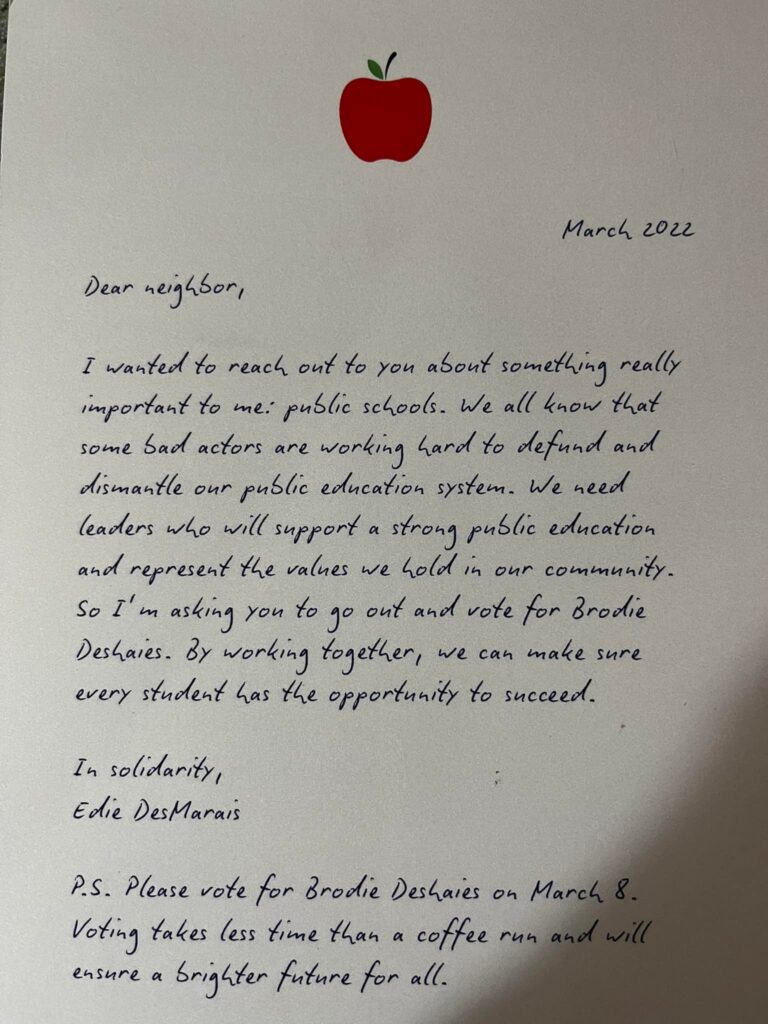 March 2022
Dear neighbor,
I wanted to reach out to you about something really
important to me: public schools. We all know that
some bad actors are working hard to defund and
dismantle our public education system. We need
leaders who will support a strong public education
and represent the values we hold in our community.
So I'm asking you to go out and vote for Brodie
Deshaies. By working together, we can make sure
every student has the opportunity to succeed.
In solidarity,
Edie DesMarais
P.S. Please vote for Brodie Deshaies on March 8.
Voting takes less time than a coffee run and will
ensure a brighter future for all.